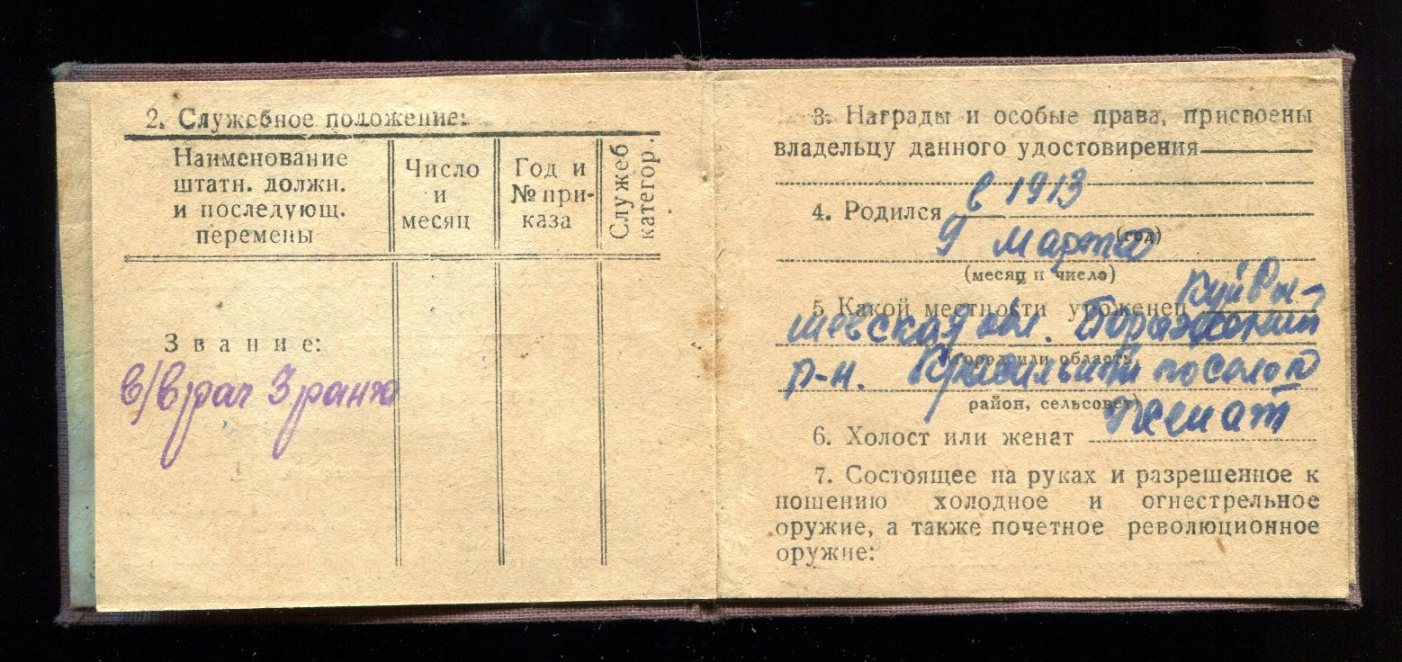 2. Служебное положение:
Наименование
штатн. должн.
и последующ.
перемены
Число
и
месяц
Год и
№ при-
каза
Служеб
категор..
Звание:
в/врач 3 ранга
3. Награды и особые права, присвоены
владельцу данного удостовирения
4. Родился в 1913
(год)
9 марта
(месяц и число)
5 Какой местности уроженец Куйбы-
шевская обл.
(город или область,
р-н.
район, сельсовет)
6. Холост или женат Женат
7. Состоящее на руках и разрешенное к
ношению холодное и огнестрельное
оружие, а также почетное революционное
оружие: